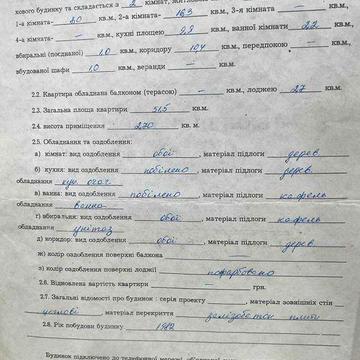 хового будинку та складається з 2 кімнат, житловою
1-а кімната- кв.м., 2-а кімната- 16,3 кв.м., 3-я кімната — кв.м.,
4-а кімната- — кв.м., кухні площею кв.м., ванної кімнати 2,2 кв.м.,
вбиральні (поєднаної) 1,0 кв.м., коридору 10,4 кв.м., передпокою — кв.м.,
вбудованої шафи 1,0 кв.м., веранди — кв.м.
2.2. Квартира обладнана балконом (терасою) — кв.м., лоджією 2,7 кв.м.
2.3. Загальна площа квартири 51,5 кв.м.
2.4. висота приміщення 2,70 кв. м.
2.5. Обладнання та оздоблення:
а) кімнат: вид оздоблення обої, матеріал підлоги дерев.
б) кухня: вид оздоблення побілено, матеріал підлоги дерев.
обладнання кух. очаг.
в) ванна: вид оздоблення побілено, матеріал підлоги кафель
обладнання ванна
г) вбиральня: вид оздоблення обої, матеріал підлоги кафель
обладнання унітаз
д) коридор: вид оздоблення обої, матеріал підлоги дерев.
ж) колір оздоблення поверхні балкона
з) колір оздоблення поверхні лоджії пофарбовано
2.6. Відновлена вартість квартири — грн.
2.7. Загальні відомості про будинок : серія проекту , матеріал зовнішніх стін
матеріал перекриття залізобетон. плити
2.8. Рік побудови будинку
Будинок підключено до телефонної мережі,